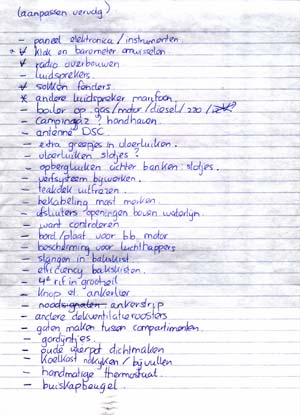 (aanpassen vervolg)
- paneel elektronica/instrumenten.
* v - klok en barometer omwisselen
v - radio overbouwen
- luidsprekers
v - sokken fenders
* andere luidspreker marifoon.
- boiler op gas/motor/diesel/220/
- Campingaz? handhaven.
- antenne DSC.
- extra greepjes in vloerluiken.
- vloerluiken slotjes?
- opbergluiken achter banken: slotjes.
- verfsysteem bijwerken.
- teakdek uitfrezen.
- bekabeling mast merken.
- afsluiters openingen boven waterlijn.
- want controleren
- bord/plaat voor bb. motor
- bescherming voor luchthappers
- slangen in bakskist
- efficiency bakskisten.
- 4e rif in grootzeil
- knop el. ankerlier
- noodsignalen ankerstrip
- andere dekventilatieroosters
- gaten maken tussen compartimenten.
- gordijntjes.
- oude dichtmaken
- koelkast nakijken/bijvullen
- handmatige thermostaat.
- buiskapbeugel.